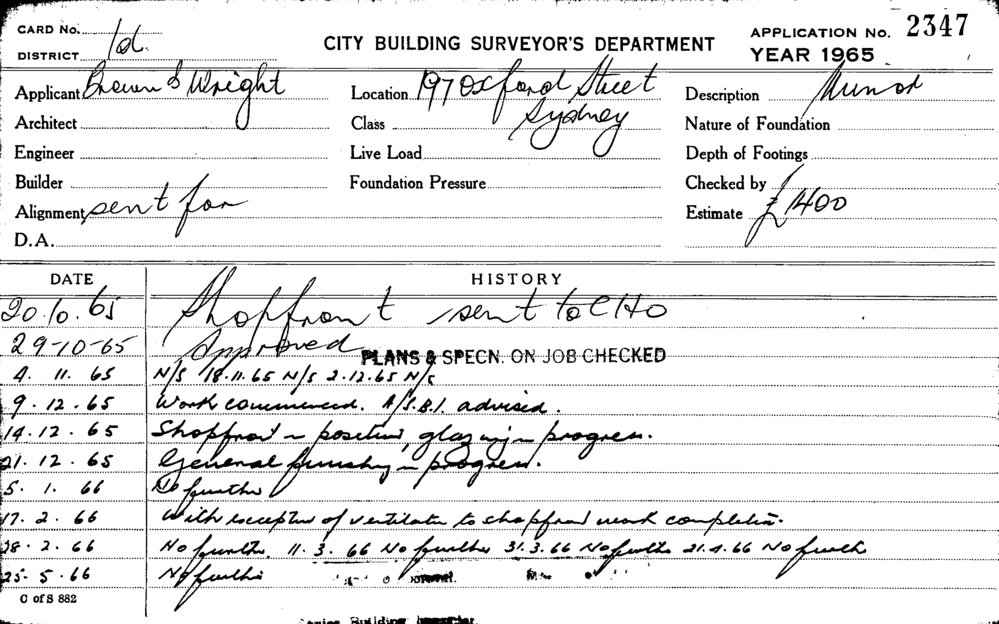 CARD No.
DISTRICT 1d.
CITY BUILDING SURVEYOR'S DEPARTMENT
APPLICATION No. 2347
YEAR 1965
Applicant Brown & Wright
Location 197 Oxford Street
Sydney
Description Munor
Architect
Class
Nature of Foundation
Engineer
Live Load
Depth of Footings
Builder
Foundation Pressure
Checked by
Alignment sent for
Estimate £1400
D.A.
DATE HISTORY
20.10.65 Shopfront sent to CHO
29-10-65 Approved PLANS & SPECN. ON JOB CHECKED
4. 11. 65 N/S 18.11.65 N/S 2.12.65 N/S
9. 12. 65 Work commenced. A/S.B.I. advised.
14. 12. 65 Shopfront in position, glazing in progress.
21. 12. 65 General finishing in progress.
5. 1. 66 No further
17. 2. 66 With exception of ventilator to shopfront work completed.
28. 2. 66 No further. 11. 3. 66 No further 31.3.66 No further 21.4.66 No further
25. 5. 66 No further
C of S 882
Building